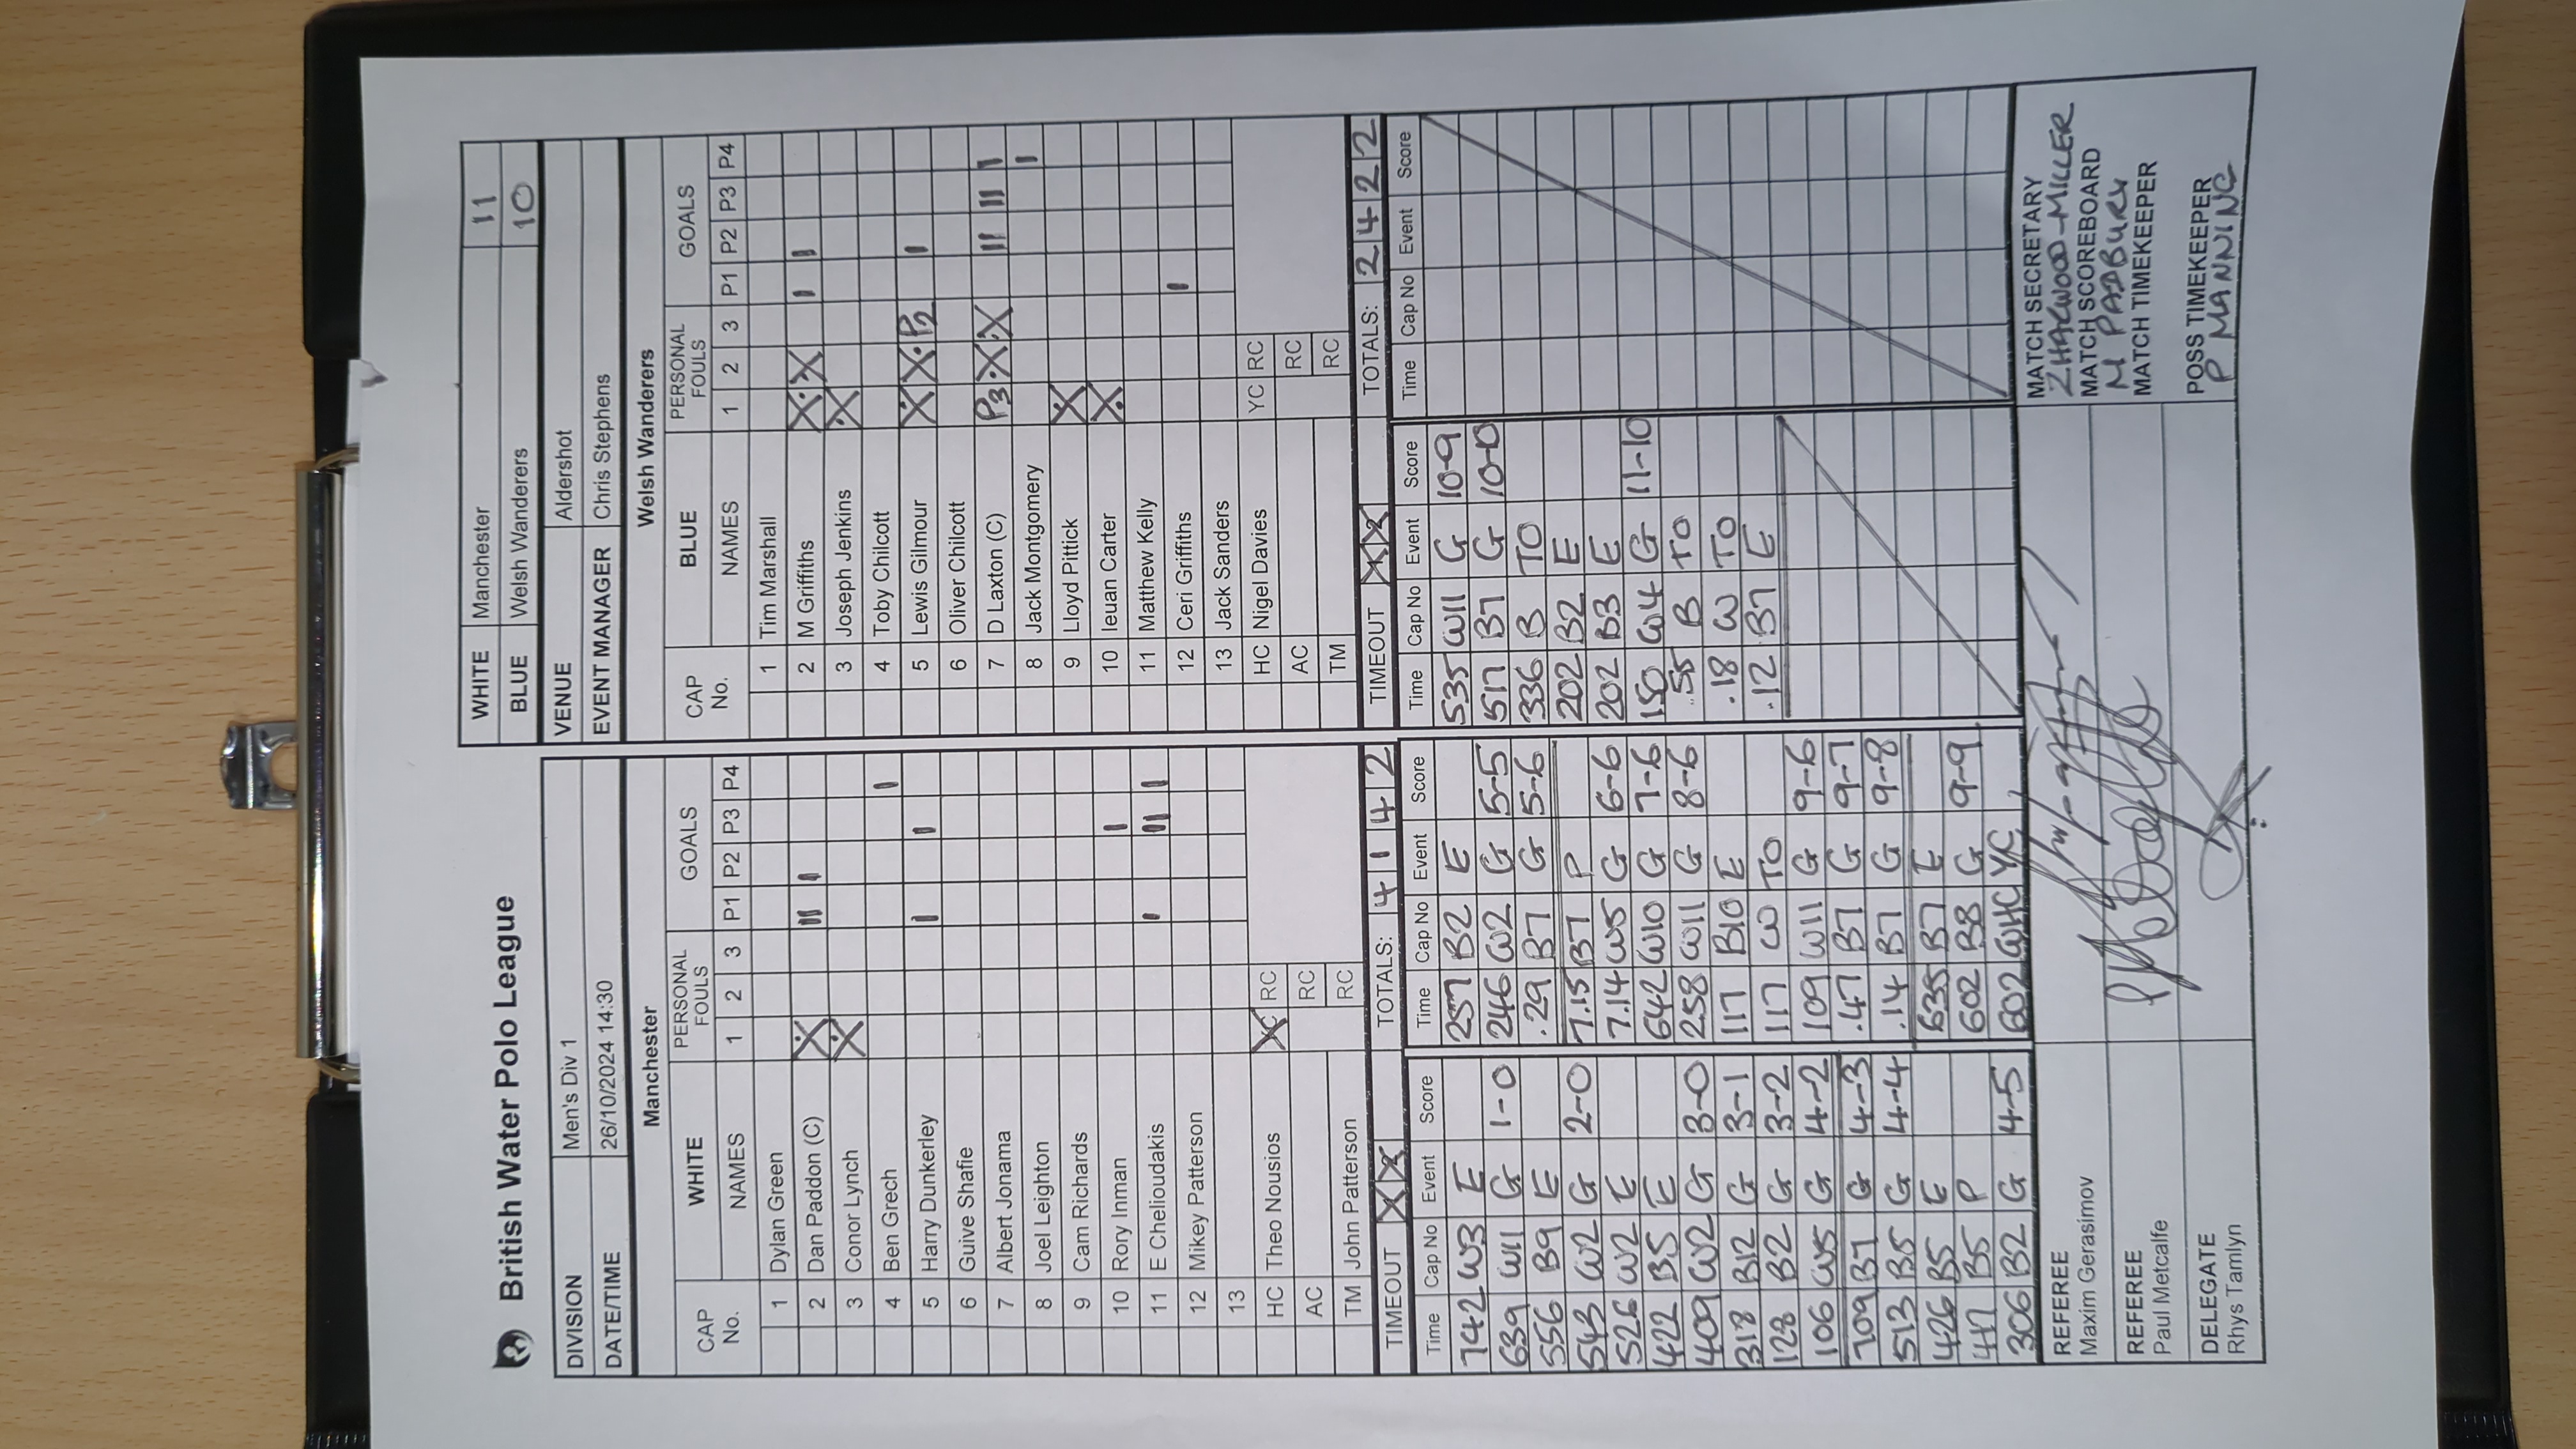 British Water Polo League
WHITE Manchester 11
BLUE Welsh Wanderers 10
DIVISION Men's Div 1
DATE/TIME 26/10/2024 14:30
VENUE Aldershot
EVENT MANAGER Chris Stephens
Manchester
CAP No. WHITE NAMES PERSONAL FOULS 1 2 3 GOALS P1 P2 P3 P4
1 Dylan Green
2 Dan Paddon (C) X III I
3 Conor Lynch X
4 Ben Grech I
5 Harry Dunkerley I I
6 Guive Shafie
7 Albert Jonama
8 Joel Leighton
9 Cam Richards
10 Rory Inman I
11 E Chelioudakis I II I
12 Mikey Patterson
13
HC Theo Nousios YC RC
AC RC
TM John Patterson RC
TIMEOUT X X2 TOTALS: 4 1 4 2
Welsh Wanderers
CAP No. BLUE NAMES PERSONAL FOULS 1 2 3 GOALS P1 P2 P3 P4
1 Tim Marshall
2 M Griffiths X X I I
3 Joseph Jenkins X
4 Toby Chilcott
5 Lewis Gilmour X X P2 I
6 Oliver Chilcott
7 D Laxton (C) P3 X X II II I
8 Jack Montgomery I
9 Lloyd Pittick X
10 Ieuan Carter X
11 Matthew Kelly
12 Ceri Griffiths I
13 Jack Sanders
HC Nigel Davies YC RC
AC RC
TM RC
TIMEOUT X X2 TOTALS: 2 4 2 2
Time Cap No Event Score
742 W3 E
639 W11 G 1-0
556 B9 E
543 W2 G 2-0
526 W2 E
422 B5 E
409 W2 G 3-0
318 B12 G 3-1
128 B2 G 3-2
106 W5 G 4-2
709 B7 G 4-3
513 B5 G 4-4
426 B5 E
417 B5 P
306 B2 G 4-5
Time Cap No Event Score
257 B2 E
246 W2 G 5-5
.29 B7 G 5-6
7.15 B7 P
7.14 W5 G 6-6
642 W10 G 7-6
258 W11 G 8-6
117 B10 E
117 W TO
109 W11 G 9-6
.47 B7 G 9-7
.14 B7 G 9-8
635 B7 E
602 B8 G 9-9
602 WHC YC
Time Cap No Event Score
535 W11 G 10-9
517 B7 G 10-0
336 B TO
202 B2 E
202 B3 E
150 W4 G 11-10
.55 B TO
.18 W TO
.12 B7 E
Time Cap No Event Score
REFEREE
Maxim Gerasimov
REFEREE
Paul Metcalfe
DELEGATE
Rhys Tamlyn
MATCH SECRETARY
Z HACWOOD-MILLER
MATCH SCOREBOARD
M PADBURY
MATCH TIMEKEEPER
POSS TIMEKEEPER
P MANNING